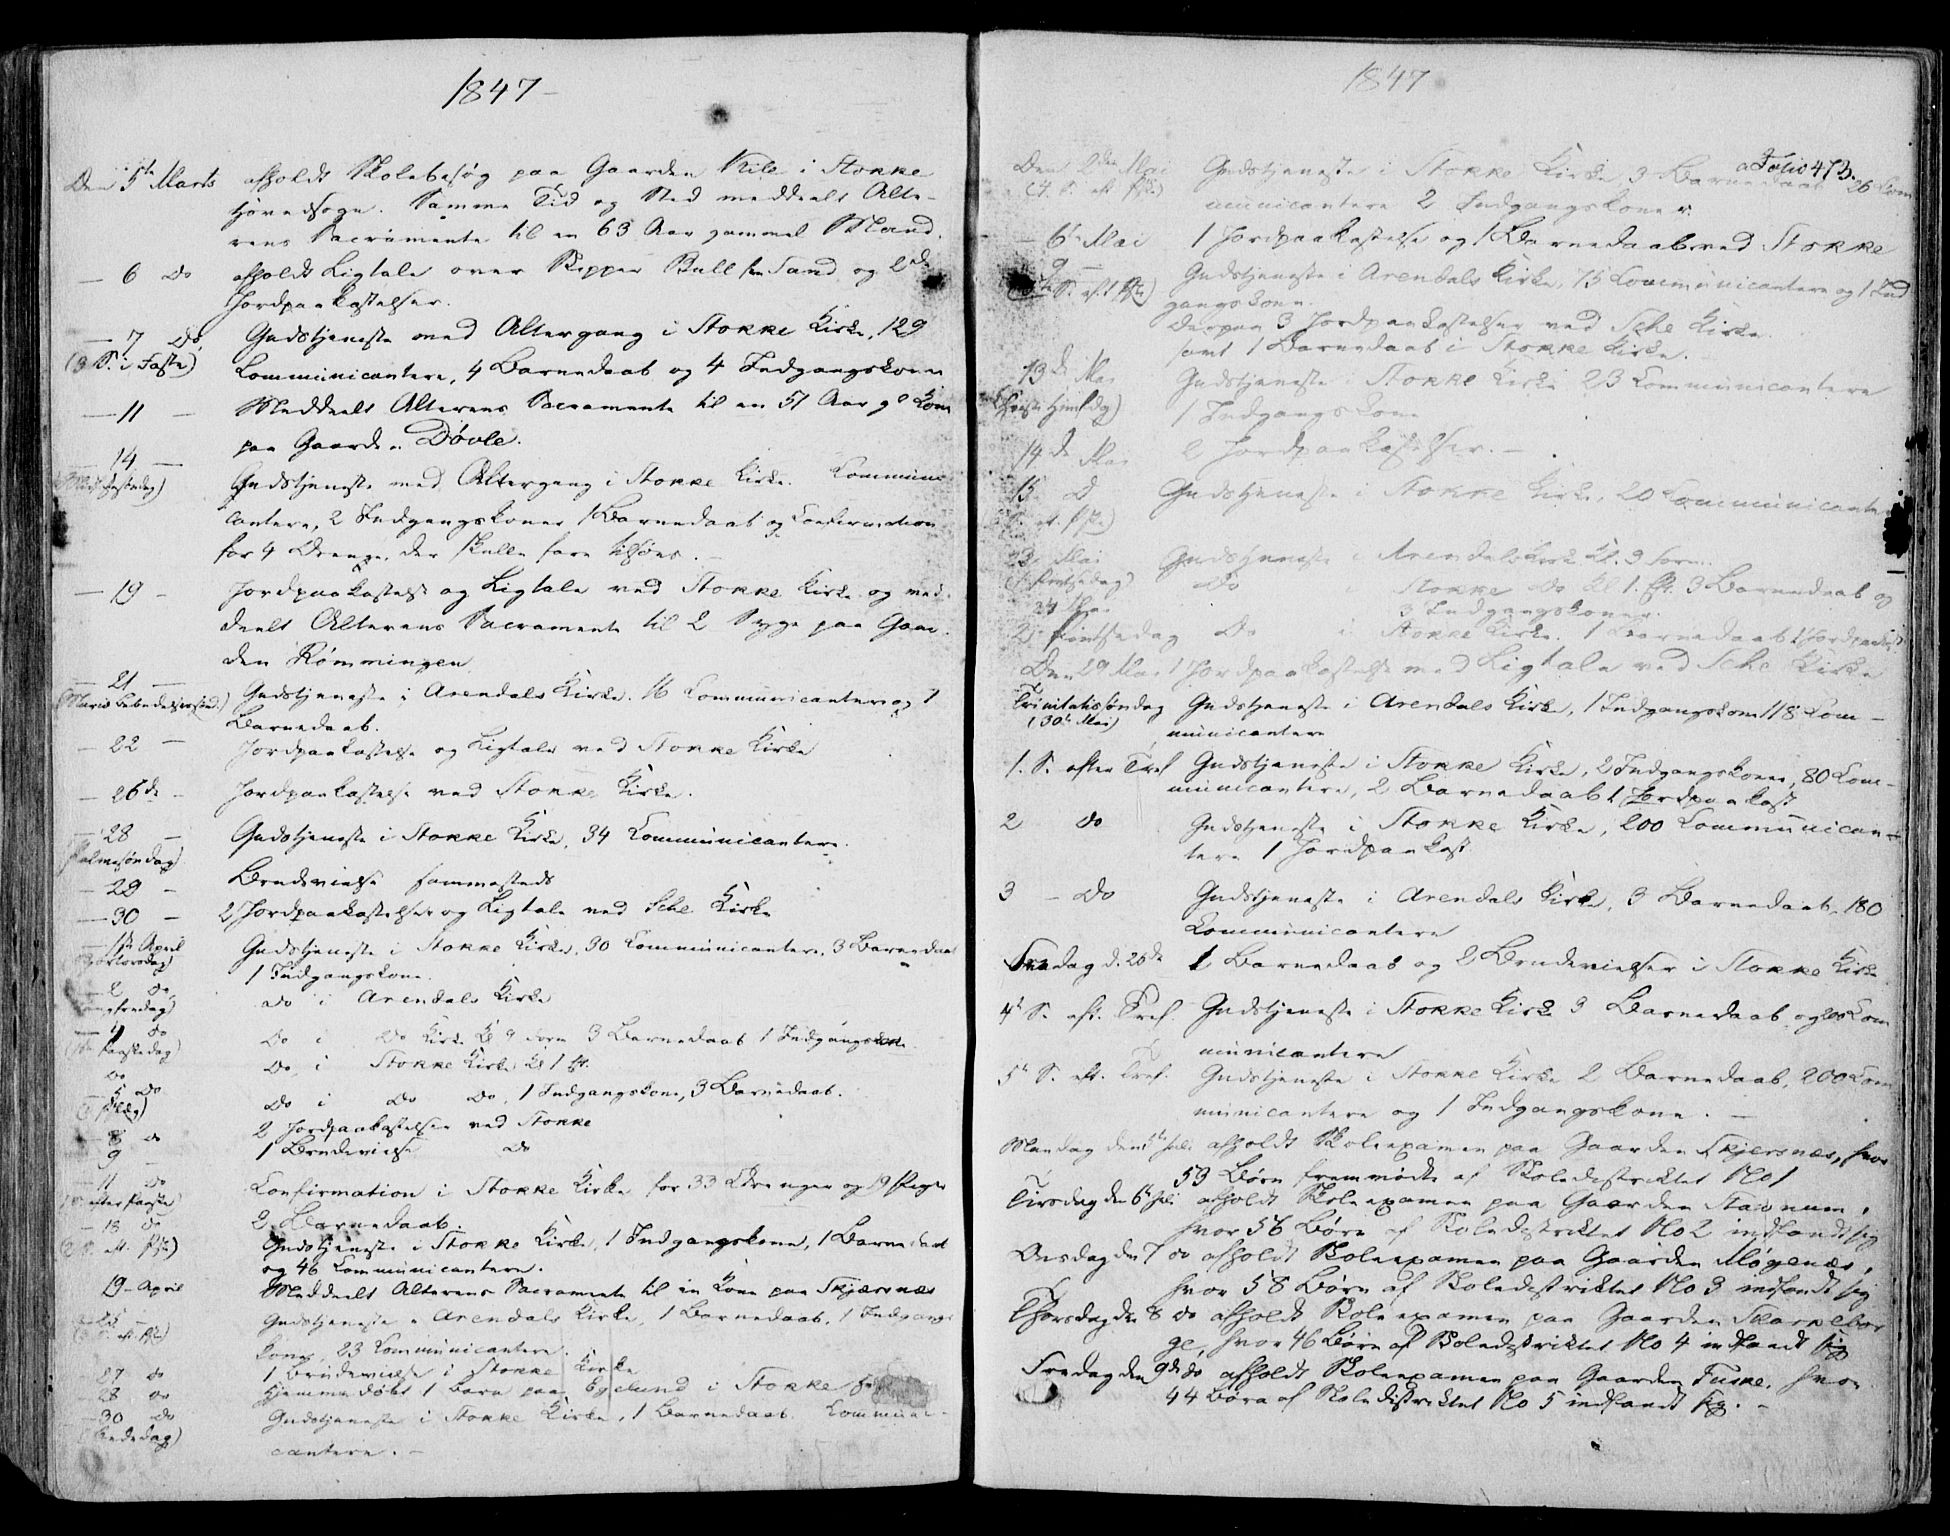 1847
Den 5te Marts afholdt Skolebesøg paa Gaarden Kile i Stokke
Hovedsogn. Samme Tid og Sted meddeelt Alte-
rens Sacramente til en 63 Aar gammel Mand.
— 6 do afholdt Ligtale over Skipper Bull fra Sand og 2de
Jordpaakastelser.
— 7 do Gudstjeneste med Altergang i Stokke Kirke, 129
(3 S. i Faste) Communicantere, 4 Barnedaab og 4 Indgangskoner
— 11 — Meddeelt Alterens Sacramente til en 51 Aar gl Kone
paa Gaarden Døvle.
— 14 —
(Midfastedag) Gudstjeneste med Altergang i Stokke Kirke. Communi-
cantere, 2 Indgangskoner 1 Barnedaab og Confirmation
for 4 Drenge, der skulle fare tilsøes. —
— 19 — Jordpaakastelse og Ligtale ved Stokke Kirke og med-
deelt Alterens Sacramente til 2 Syge paa Gaar-
den Rømmingen
— 21 —
(Mariæ Bebudelsesfest.) Gudstjeneste i Arendals Kirke. 16 Communicantere og 1
Barnedaab.
— 22 — Jordpaakastelse og Ligtale ved Stokke Kirke
— 26de — Jordpaakastelse ved Stokke Kirke.
— 28 — Gudstjeneste i Stokke Kirke, 34 Communicantere.
(Palmesøndag)
— 29 — Brudevielse sammesteds
— 30 — 2 Jordpaakastelser og Ligtale ved Sche Kirke
— 1ste April Gudstjeneste i Stokke Kirke, 30 Communicantere, 3 Barnedaab
(Skjærtorsdag) 1 Indgangskone.
— 2 do do i Arendals Kirke
(Langfredag)
— 4 do do i do Kirke Kl 9 Form 3 Barnedaab 1 Indgangskone.
(1ste Paaskedag)
do do i Stokke Kirke Kl 1 Eft.
— 5 do do i do do, 1 Indgangskone, 3 Barnedaab.
— 8 do 2 Jordpaakastelser ved Stokke
9 — 1 Brudevielse do
— 11 do Confirmation i Stokke Kirke for 33 Drenger og 19 Piger
(1 S. efter Paaske) 2 Barnedaab.
— 18 do Gudstjeneste i Stokke Kirke, 1 Indgangskone, 1 Barnedaab
(2 S. eft. Pske) og 46 Communicantere.
19 — April Meddeelt Alterens Sacramente til en Kone paa Skjærsnæs
— 25 — Gudstjeneste i Arendals Kirke, 1 Barnedaab, 1 Indgangs-
(3 S. eft. Pske) kone, 23 Communicantere.
— 27 do 1 Brudevielse i Stokke Kirke
— 28 do Hjemmedøbt 1 Barn paa Egelund i Stokke
— 30 do Gudstjeneste i Stokke Kirke, 1 Barnedaab. Communi-
(Bededag)
cantere. —
1847
Folio 473.
Den 2den Mai Gudstjeneste i Stokke Kirke 3 Barnedaab 26 Com-
(4 S. eft Pske) municantere 2 Indgangskoner.
— 6te Mai 1 Jordpaakastelse og 1 Barnedaab ved Stokke
9 — Gudstjeneste i Arendals Kirke, 75 Communicantere og 1 Ind-
(5te S. eft Pske) gangskone.
Derpaa 3 Jordpaakastelser ved Sche Kirke
samt 1 Barnedaab i Stokke Kirke.
13de Mai Gudstjeneste i Stokke Kirke 23 Communicantere
(Christi Himfdg) 1 Indgangskone
14de Mai 2 Jordpaakastelser. —
Gudstjeneste i Stokke Kirke, 20 Communicantere
23 Mai Gudstjeneste i Arendals Kirke Kl. 9 Form.
(1 Pintsedag) do i Stokke do Kl 1. Eft. 3 Barnedaab og
24 Mai 3 Indgangskoner.
2 Pintsedag do i Stokke Kirke. 1 Barnedaab 1 Jordpaakast
Den 29 Mai 1 Jordpaakastelse med Ligtale ved Sche Kirke
Trinitatissøndag Gudstjeneste i Arendals Kirke, 1 Indgangskone 118 Com-
(30te Mai) municantere
1. S. efter Tref Gudstjeneste i Stokke Kirke, 2 Indgangskoner, 80 Com-
municantere, 2 Barnedaab 1 Jordpaakast
2 do Gudstjeneste i Stokke Kirke, 200 Communican-
tere 1 Jordpaakast
3 — do Gudstjeneste i Arendals Kirke, 3 Barnedaab, 180
Communicantere
Fredag d. 25de 1 Barnedaab og 2 Brudevielser i Stokke Kirke
4de S. eft. Tref. Gudstjeneste i Stokke Kirke 3 Barnedaab og 200 Com-
municantere
5te S. eft. Tref. Gudstjeneste i Stokke Kirke 2 Barnedaab, 200 Com-
municantere og 1 Indgangskone. —
Mandag den 5te Juli afholdt Skoleexamen paa Gaarden Skjersnæs, hvor
59 Børn fremmødte af Skoledistriktet No 1
Tirsdag den 6te Juli afholdt Skoleexamen paa Gaarden Stavnum,
hvor 56 Børn af Skoledistriktet No 2 indfandt sig
Onsdag den 7 do afholdt Skoleexamen paa Gaarden Møgenæs,
hvor 58 Børn af Skoledistriktet No 3 indfandt sig
Thorsdag den 8 do afholdt Skoleexamen paa Gaarden Skarpebor-
ge, hvor 46 Børn af Skoledistriktet No 4 indfandt sig
Fredag den 9de do afholdt Skoleexamen paa Gaarden Fuske, hvor
44 Børn af Skoledistriktet No 5 indfandt sig. —